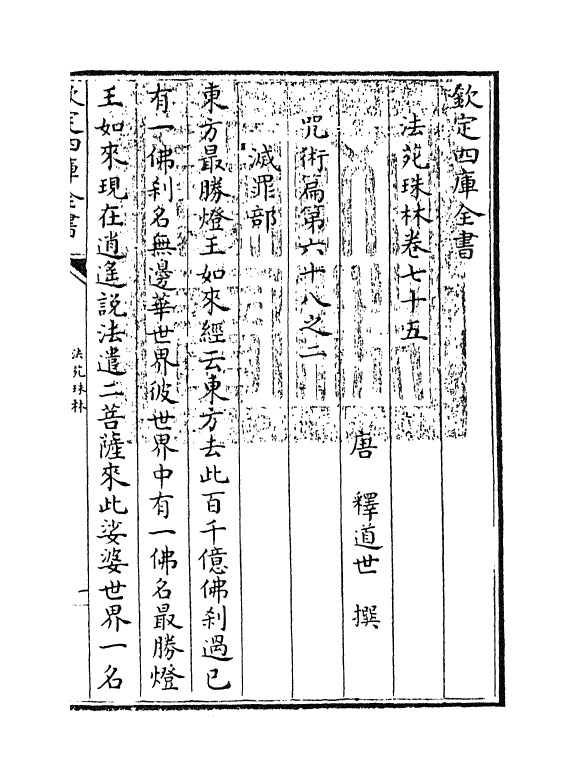 欽定四庫全書
法苑珠林卷七十五
唐 釋道世 撰
咒術篇第六十八之二
滅罪部
東方最勝燈王如來經云東方去此百千億佛刹過已
有一佛刹名無邊華世界彼世界中有一佛名最勝燈
王如來現在逍遙說法遣二菩薩來此娑婆世界一名
欽定四庫全書
法苑珠林
一